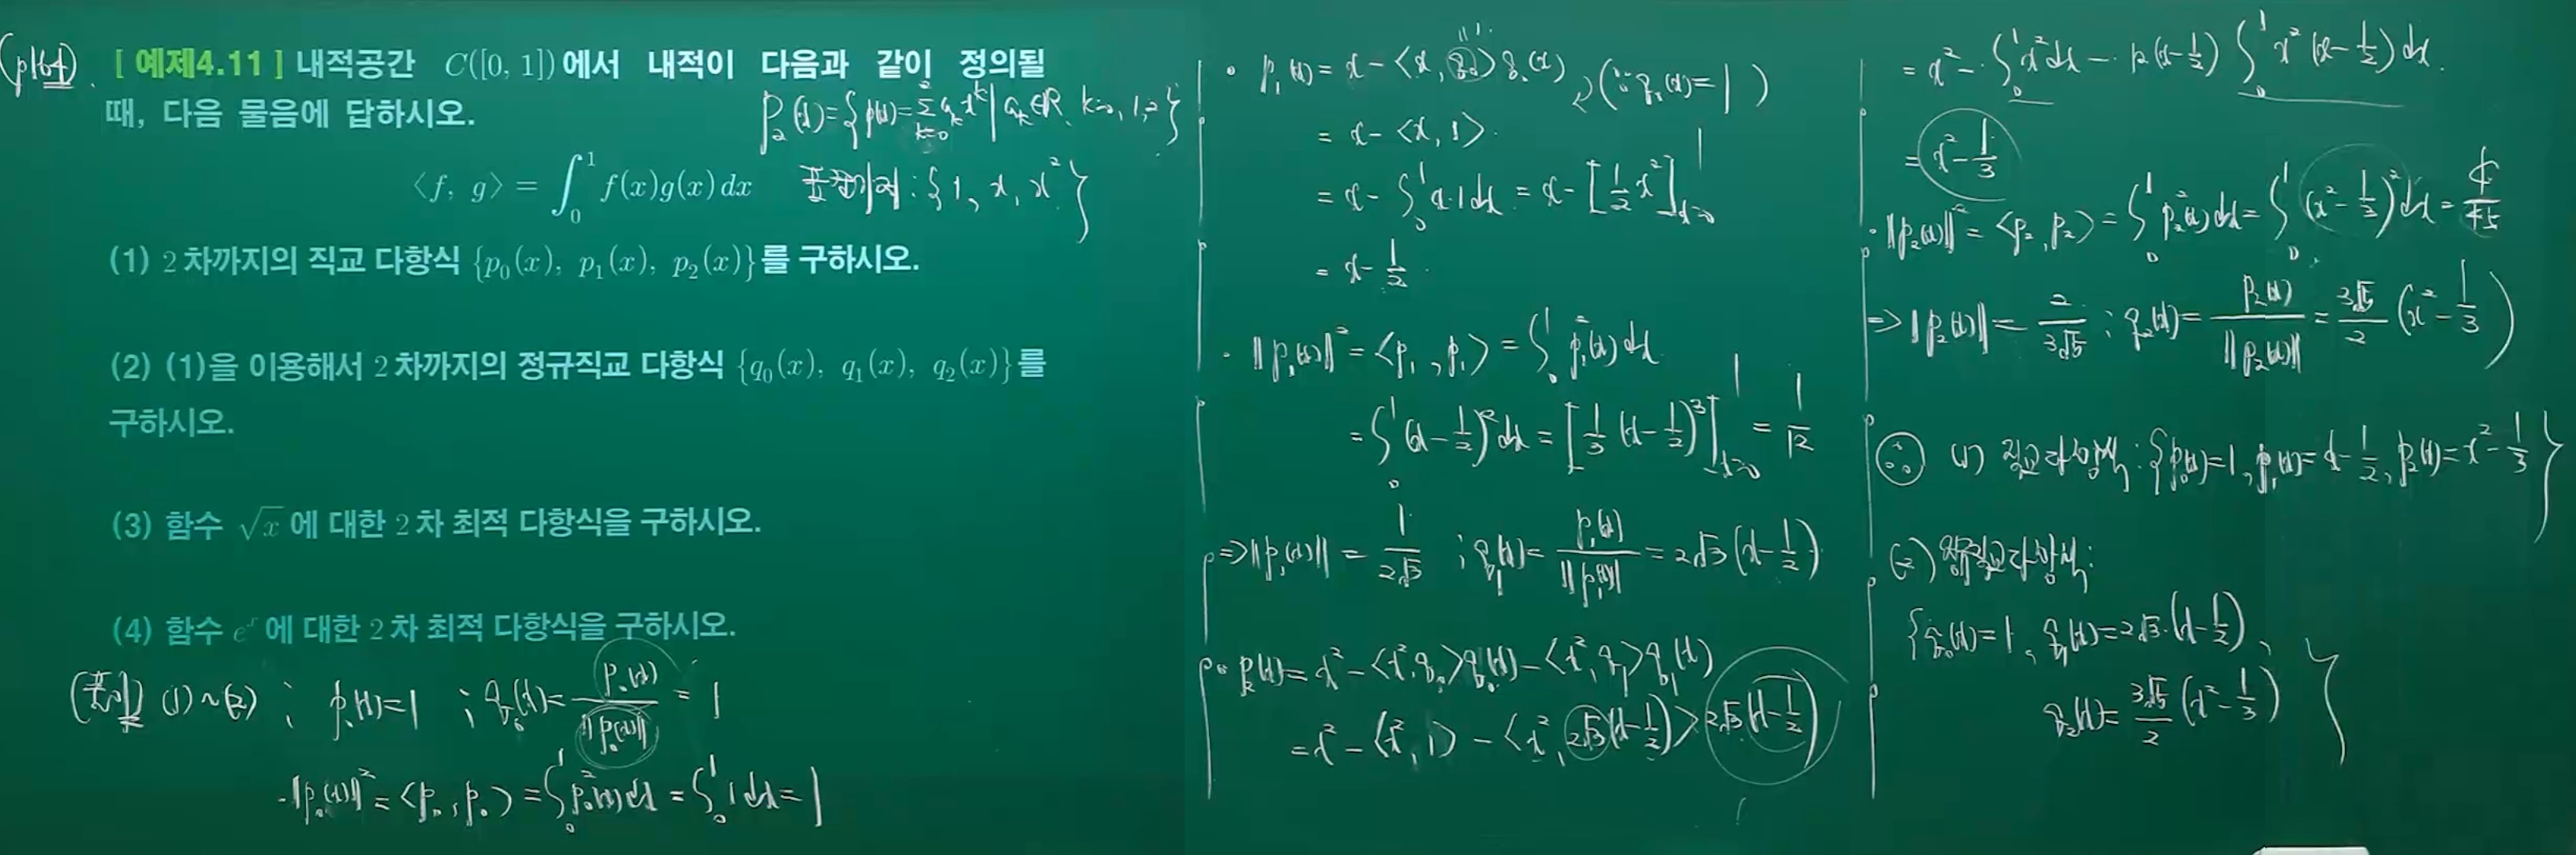 (p164)
[ 예제4.11 ] 내적공간 C([0, 1])에서 내적이 다음과 같이 정의될
때, 다음 물음에 답하시오.
P₂(x)={p(x)=Σ_{k=0}^{2} a_k x^k | a_k∈R, k=0, 1, 2}
⟨f, g⟩ = ∫₀¹ f(x)g(x) dx
표준기저 : {1, x, x²}
(1) 2차까지의 직교 다항식 {p₀(x), p₁(x), p₂(x)}를 구하시오.
(2) (1)을 이용해서 2차까지의 정규직교 다항식 {q₀(x), q₁(x), q₂(x)}를
구하시오.
(3) 함수 √x 에 대한 2차 최적 다항식을 구하시오.
(4) 함수 eˣ에 대한 2차 최적 다항식을 구하시오.
(풀이) (1)~(2) ; p₀(x)=1 ; q₀(x)= p₀(x)/‖p₀(x)‖ = 1
- ‖p₀(x)‖² = <p₀, p₀> = ∫₀¹ p₀²(x)dx = ∫₀¹ 1dx = 1
• p₁(x) = x - <x, q₀>q₀(x) (∵ q₀(x)=1)
= x - <x, 1>
= x - ∫₀¹ x·1dx = x - [1/2 x²]¹ₓ₌₀
= x - 1/2
• ‖p₁(x)‖² = <p₁, p₁> = ∫₀¹ p₁²(x)dx
= ∫₀¹ (x - 1/2)² dx = [1/3 (x - 1/2)³]¹ₓ₌₀ = 1/12
⇒ ‖p₁(x)‖ = 1/(2√3) ; q₁(x) = p₁(x)/‖p₁(x)‖ = 2√3 (x - 1/2)
• p₂(x) = x² - <x², q₀>q₀(x) - <x², q₁>q₁(x)
= x² - <x², 1> - <x², 2√3(x - 1/2)> 2√3(x - 1/2)
= x² - ∫₀¹ x² dx - 12(x - 1/2) ∫₀¹ x² (x - 1/2) dx
= x² - 1/3
• ‖p₂(x)‖² = <p₂, p₂> = ∫₀¹ p₂²(x)dx = ∫₀¹ (x² - 1/3)² dx = 4/45
⇒ ‖p₂(x)‖ = 2/(3√5) ; q₂(x) = p₂(x)/‖p₂(x)‖ = 3√5/2 (x² - 1/3)
∴ (1) 직교다항식 : {p₀(x)=1, p₁(x)=x - 1/2, p₂(x)=x² - 1/3}
(2) 정규직교다항식 :
{q₀(x)=1, q₁(x)=2√3·(x - 1/2),
q₂(x)= 3√5/2 (x² - 1/3)}